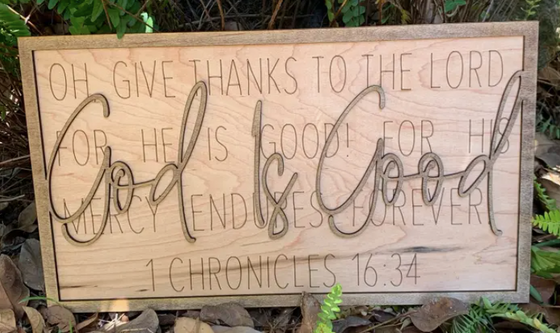 OH GIVE THANKS TO THE LORD
FOR HE IS GOOD! FOR HIS
God Is Good
MERCY ENDURES FOREVER
1 CHRONICLES 16:34